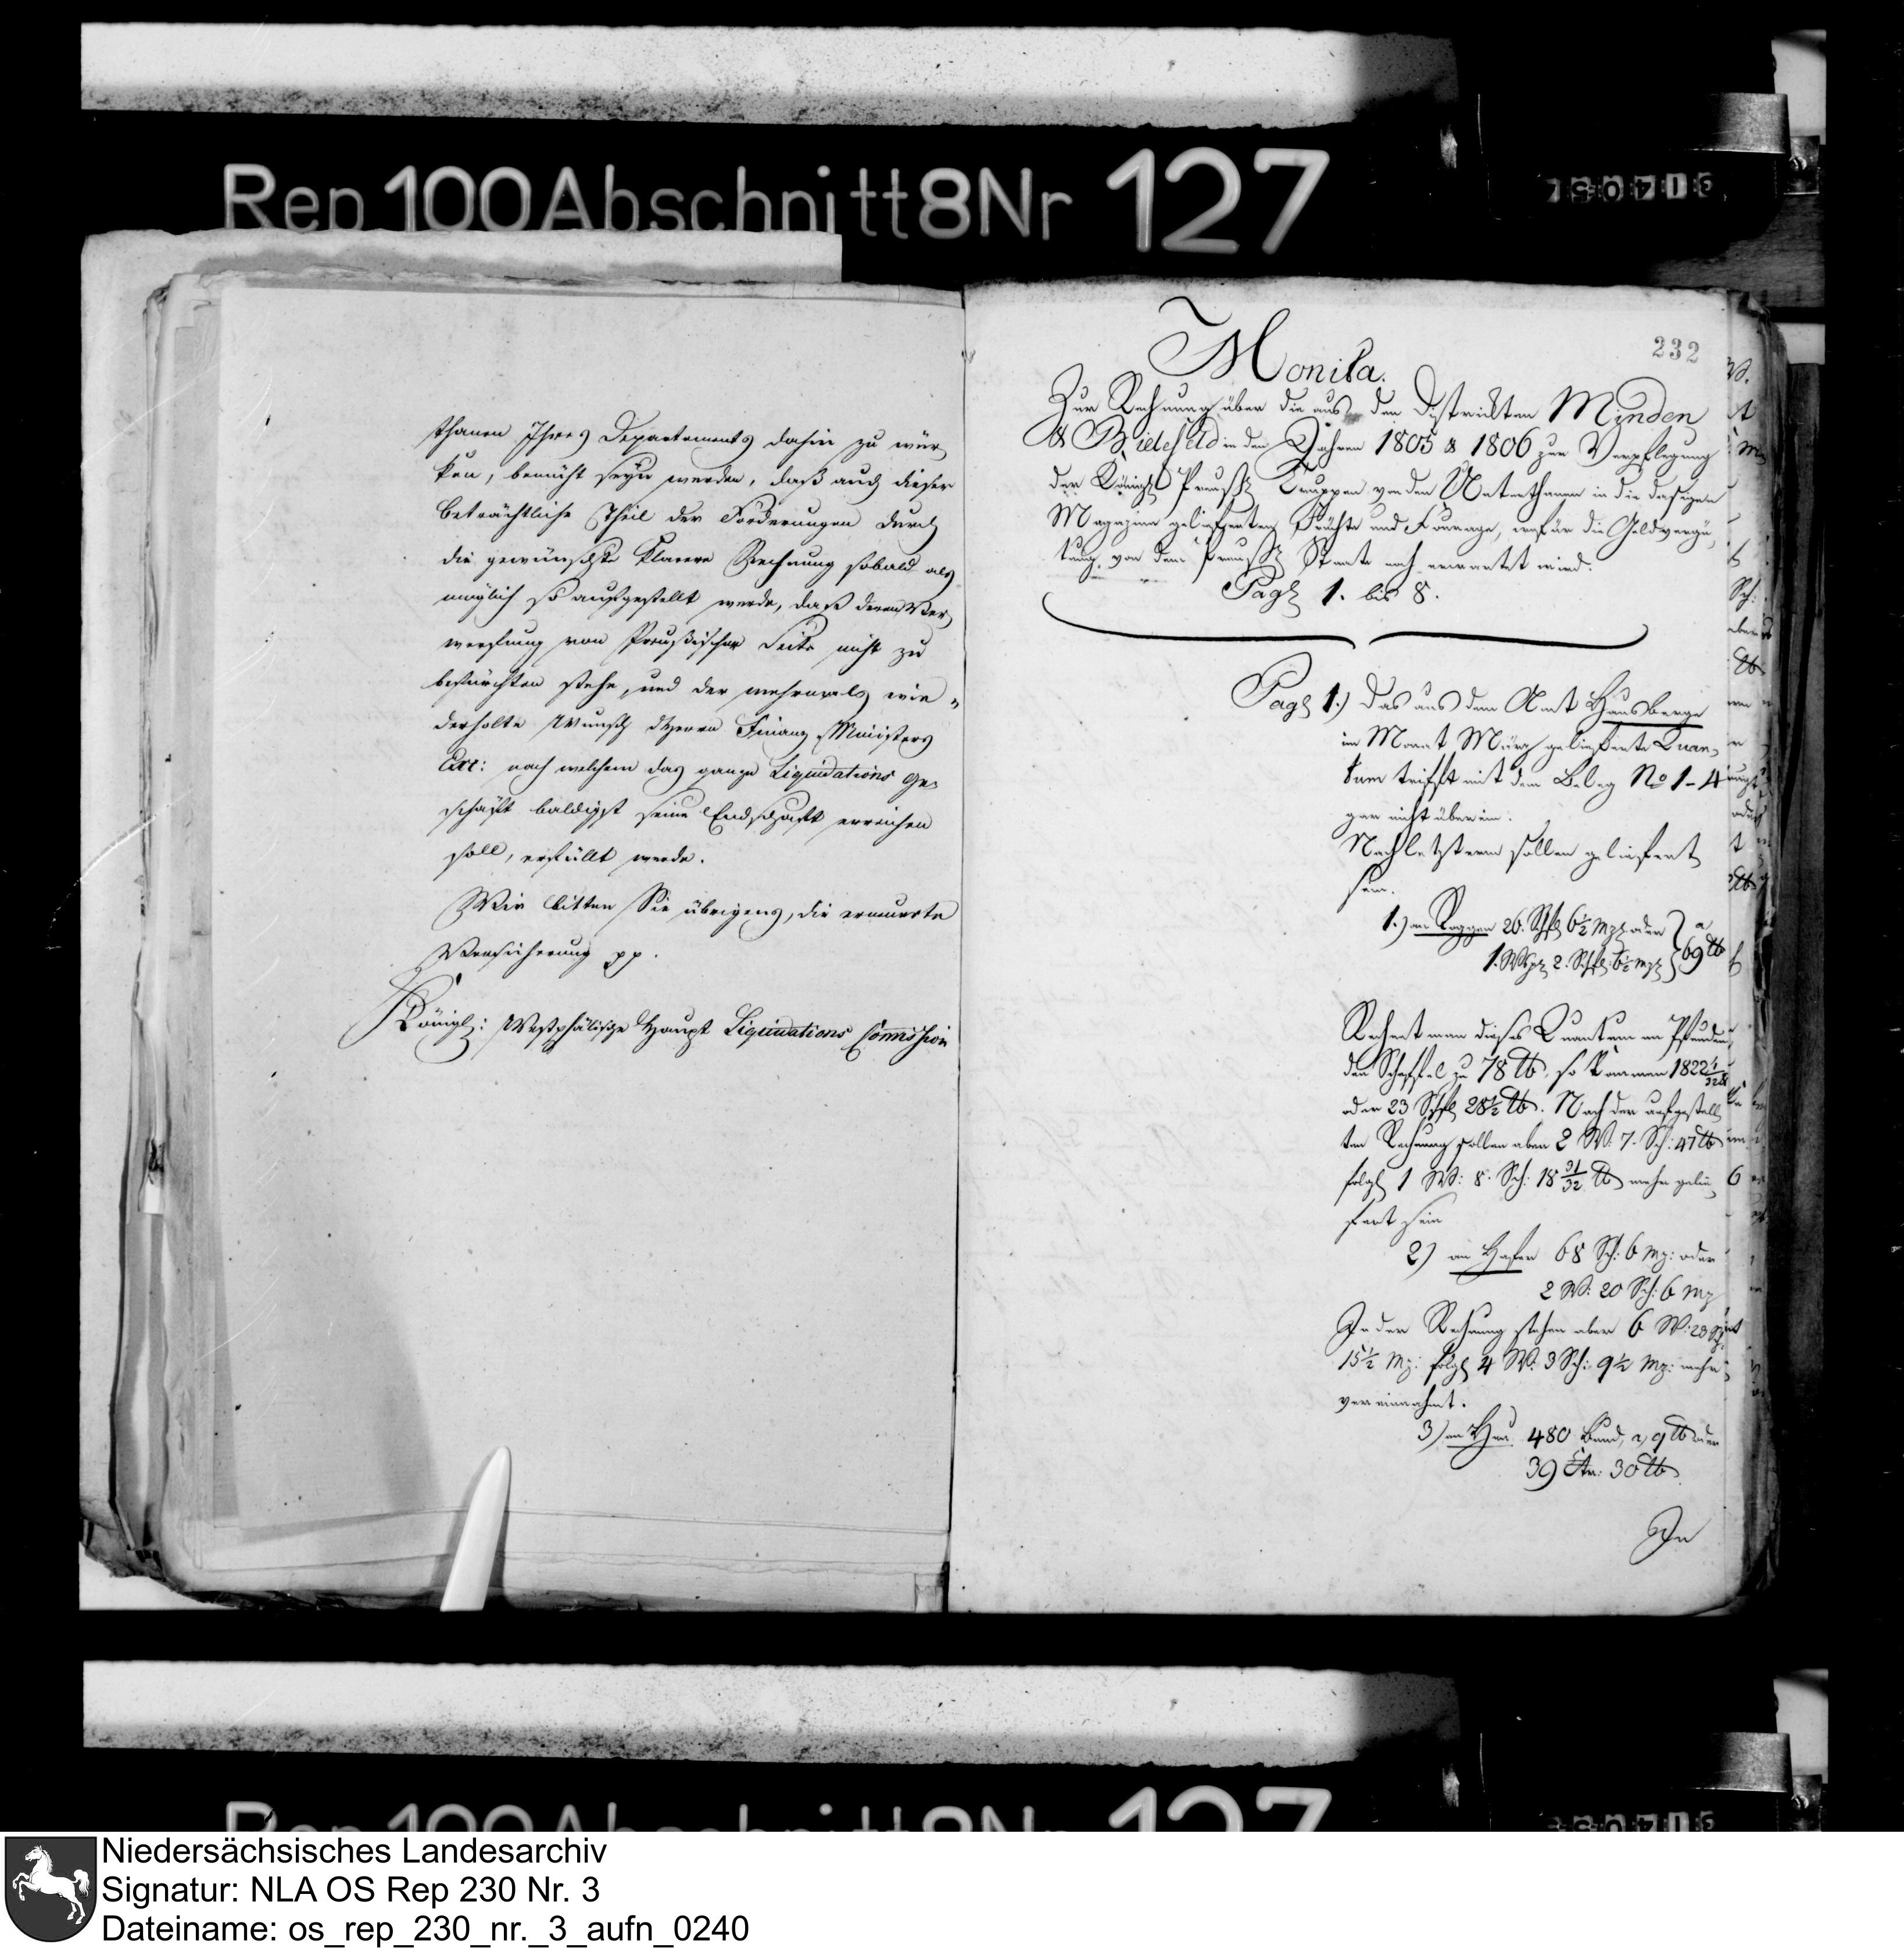 Rep 100 Abschnitt 8 Nr 127
thanen Ihres Departements dahin zu wür„
ken, bemüht seyn werden, daß auch dieser
beträchtliche Theil der Forderungen durch
die gewünschte klarere Rechnung sobald als
möglich so aufgestellt werde, daß deren Ver„
werfung von Preußischer Seite nicht zu
befürchten stehe, und der mehrmals wie„
derholte Wunsch des Herrn Finanz Ministers
Exc: nach welchem das ganze Liquidations Ge„
schäft baldigst seine Endschaft erreichen
soll, erfüllt werde.
Wir bitten Sie übrigens, die erneuerte
Versicherung pp.
Königl: Westphälische Haupt Liquidations Commission
232
Monita.
Zur Rechnung über die aus den Districkten Minden
& Bielefeld in den Jahren 1805 & 1806 zur Verpflegung
der Königl Preuß Truppen von den Unterthanen in die dasigen
Magazine gelieferten Früchte und Fourage, wofür die Geldvergü„
tung von dem Preuß Staate noch erwartet wird.
Pag 1. bis 8.
Pag 1.) Das aus dem Amt Hausberge
im Monat März gelieferte Quan„
tum trifft mit dem Beleg No 1-4
gar nicht überein.
Nach letzterm sollen geliefert
sein.
1.) an Roggen 26. Schfl 6½ Mz oder } a
1. Wspl 2. Schfl 6½ Mz } 69 ℔
Rechnet man dieses Quantum an Pfunden
den Scheffel zu 78 ℔. so kommen 1822 1/32
oder 23 Schfl 28½ ℔. Nach der aufgestell
ten Rechnung sollen aber 2 W: 7. Sch: 47 ℔
folgl 1 W: 8. Sch: 18 31/32 ℔ mehr gelie„
fert sein
2) an Hafer 68 Sch: 6 Mz: oder
2 W: 20 Sch: 6 Mz
In der Rechnung stehen aber 6 W: 23 Sch:
15½ Mz: folgl 4 W: 3 Sch: 9½ Mz: mehr
vereinnahmt.
3) an Heu 480 Bund, a 9 ℔ oder
39 Ctr: 30 ℔
In
Niedersächsisches Landesarchiv
Signatur: NLA OS Rep 230 Nr. 3
Dateiname: os_rep_230_nr._3_aufn_0240